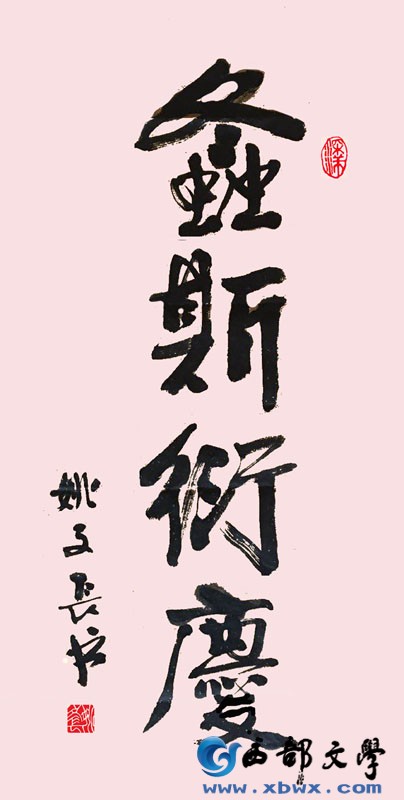 螽斯衍慶
姚文長书
西部文學
www.xbwx.com